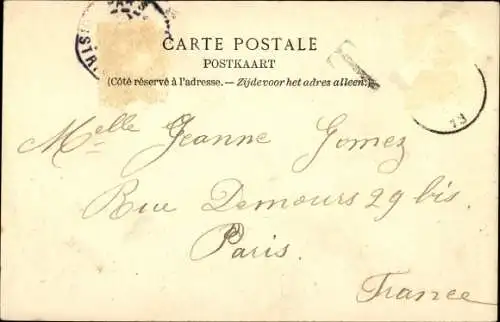 CARTE POSTALE
POSTKAART
(Côté réservé à l'adresse. — Zijde voor het adres alleen.)
T
Melle Jeanne Gomez
Rue Demours 29 bis.
Paris.
France